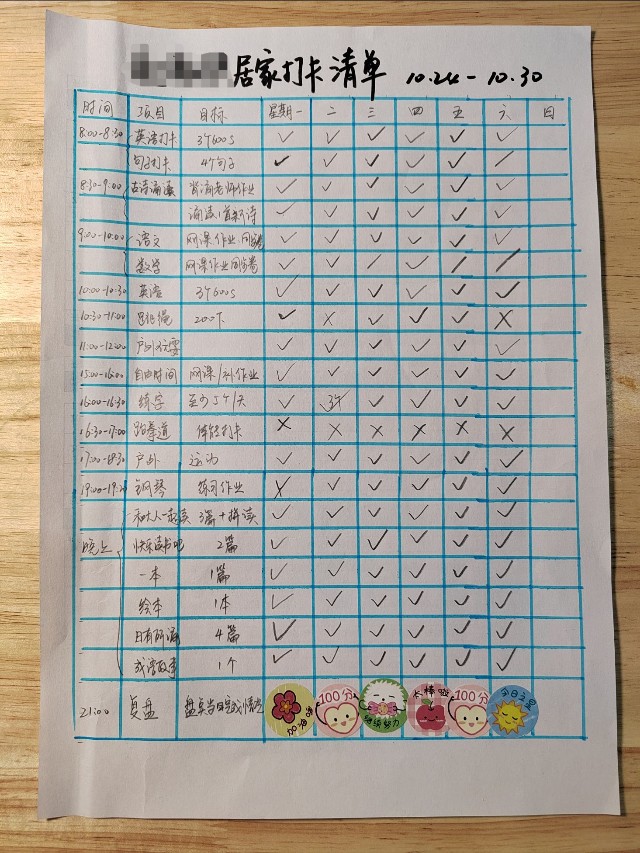 居家打卡清单 10.24-10.30
时间 项目 目标 星期一 二 三 四 五 六 日
8:00-8:30 英语打卡 3个600s ✓ ✓ ✓ ✓ ✓ ✓
句子打卡 4个句子 ✓ ✓ ✓ ✓ ✓
8:30-9:00 古诗诵读 作业 ✓ ✓ ✓ ✓ ✓ ✓
诵读1首 诗 ✓ ✓ ✓ ✓ ✓ ✓
9:00-10:00 语文 网课作业 ✓ ✓ ✓ ✓ ✓ ✓
数学 网课作业 ✓ ✓ ✓ ✓
10:00-10:30 英语 3个600s ✓ ✓ ✓ ✓ ✓ ✓
10:30-11:00 跳绳 200下 ✓ × ✓ ✓ ✓ ×
11:00-12:00 户外玩耍 ✓ ✓ ✓ ✓ ✓ ✓
15:00-16:00 自由时间 网课/补作业 ✓ ✓ ✓ ✓ ✓ ✓
16:00-16:30 练字 至少5个/天 ✓ ✓ ✓ ✓ ✓
16:30-17:00 跆拳道 体能打卡 × × × × × ×
17:00-18:30 户外 运动 ✓ ✓ ✓ ✓ ✓ ✓
19:00-19:20 钢琴 练习作业 × ✓ ✓ ✓ ✓ ✓
晚上 和大人一起读 3篇+拼读 ✓ ✓ ✓ ✓ ✓ ✓
快乐读书吧 2篇 ✓ ✓ ✓ ✓ ✓ ✓
一本 1篇 ✓ ✓ ✓ ✓ ✓ ✓
绘本 1本 ✓ ✓ ✓ ✓ ✓ ✓
日有所诵 4篇 ✓ ✓ ✓ ✓ ✓ ✓
成语故事 1个 ✓ ✓ ✓ ✓ ✓ ✓
21:00 复盘 盘点当日完成情况 100分 继续努力 太棒啦 100分 今日之星